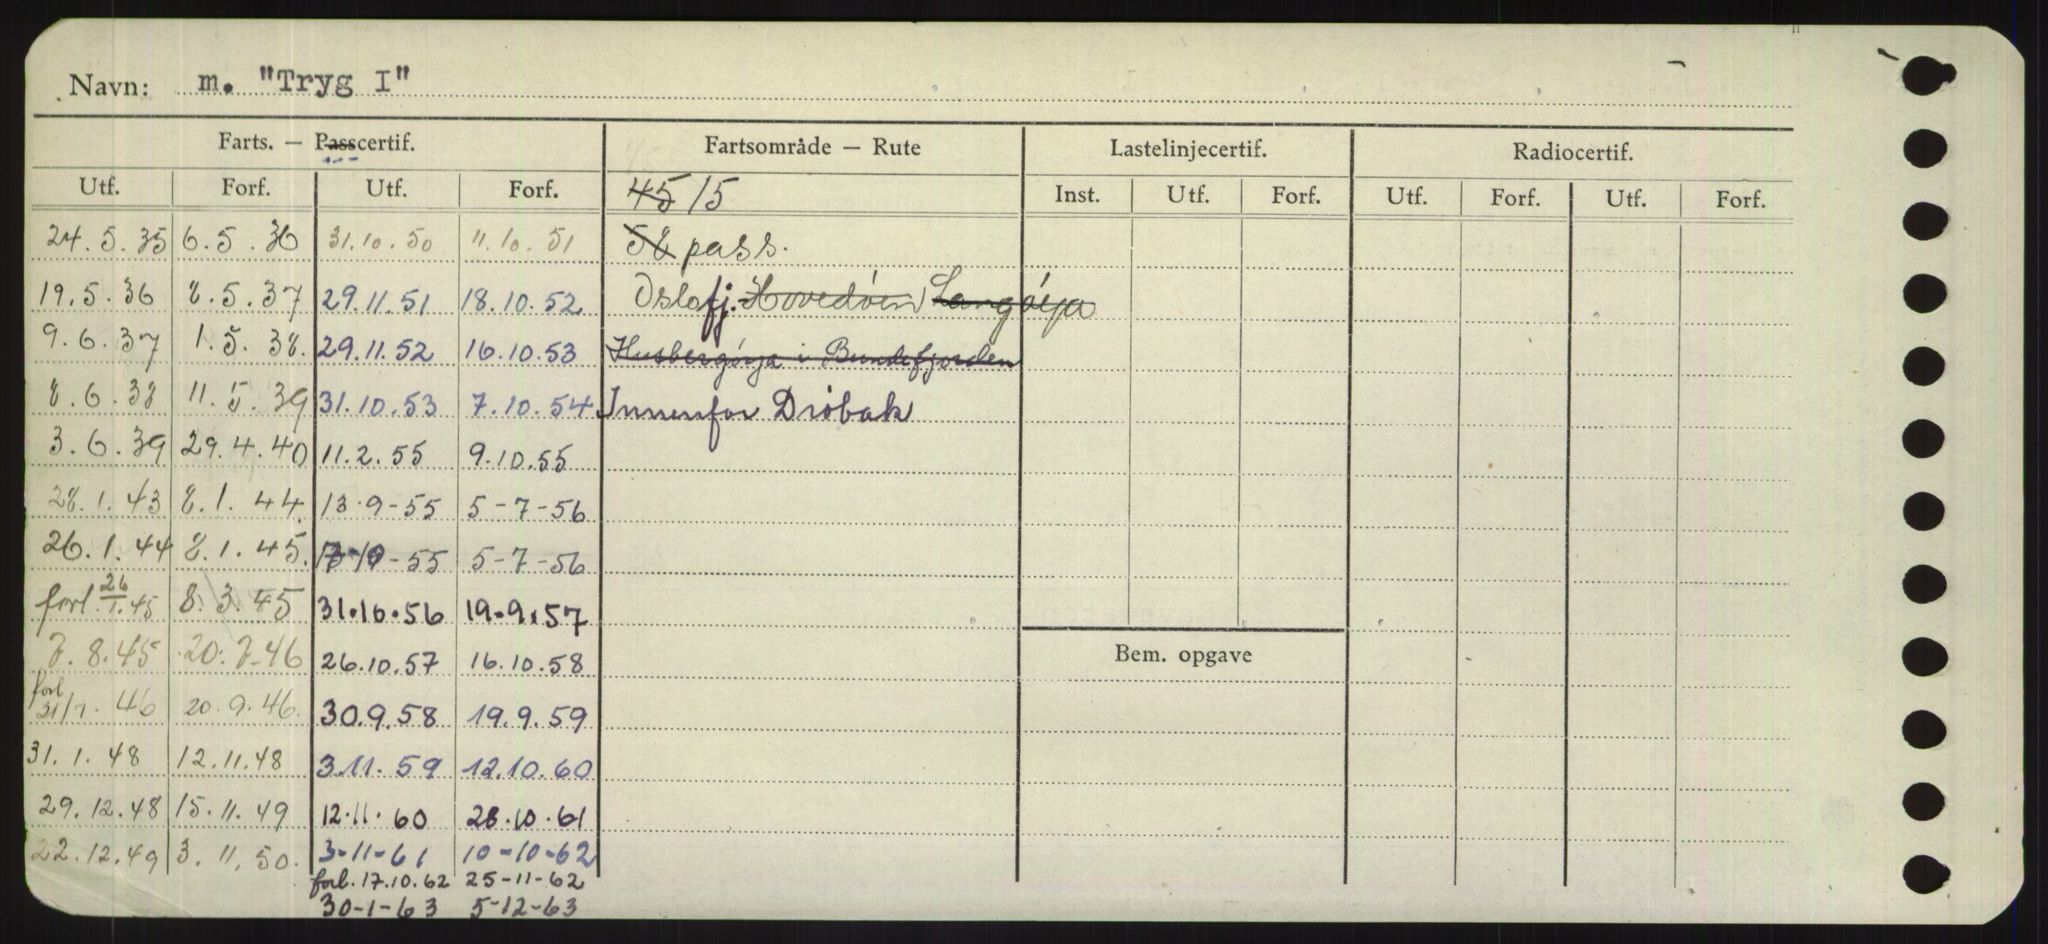 Navn: m. "Tryg I"
Farts. — Passcertif. Fartsområde — Rute Lastelinjecertif. Radiocertif.
Utf. Forf. Utf. Forf. 45 15 Inst. Utf. Forf. Utf. Forf. Utf. Forf.
24.5.35 6.5.36 31.10.50 11.10.51 52 pass.
19.5.36 8.5.37 29.11.51 18.10.52 Oslofj. Hovedøen Langøya
9.6.37 1.5.38. 29.11.52 16.10.53 Husbergøya i Bundefjorden
8.6.38 11.5.39 31.10.53 7.10.54 Innenfor Drøbak
3.6.39 29.4.40 11.2.55 9.10.55
28.1.43 8.1.44. 13.9-55 5-7-56
26.1.44 8.1.45. -55 5-7-56
forl. 26/1.45 8.3.45 31.10.56 19.9.57
7.8.45 20.7.46 26.10.57 16.10.58
Bem. opgave
forl 31/7.46 20.9.46. 30.9.58 19.9.59
31.1.48 12.11.48 3.11.59 12.10.60
29.12.48 15.11.49 12.11.60 28.10.61
22.12.49 3.11.50. 3-11-61 10-10-62
forl. 17.10.62 25-11-62
30-1-63 5-12-63